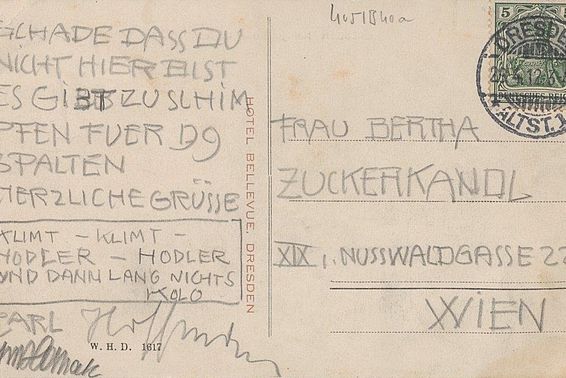 SCHADE DASS DU
NICHT HIER BIST
ES GIBT ZU SCHIM
PFEN FUER D9
SPALTEN
HERZLICHE GRÜSSE
KLIMT - KLIMT -
HODLER - HODLER
UND DANN LANG NICHTS
KOLO
CARL
Hoffmann
HOTEL BELLEVUE. DRESDEN
W. H. D. 1617
5
DRESDEN
ALTST. 1
FRAU BERTHA
ZUCKERKANDL
XIX, NUSSWALDGASSE 22
WIEN